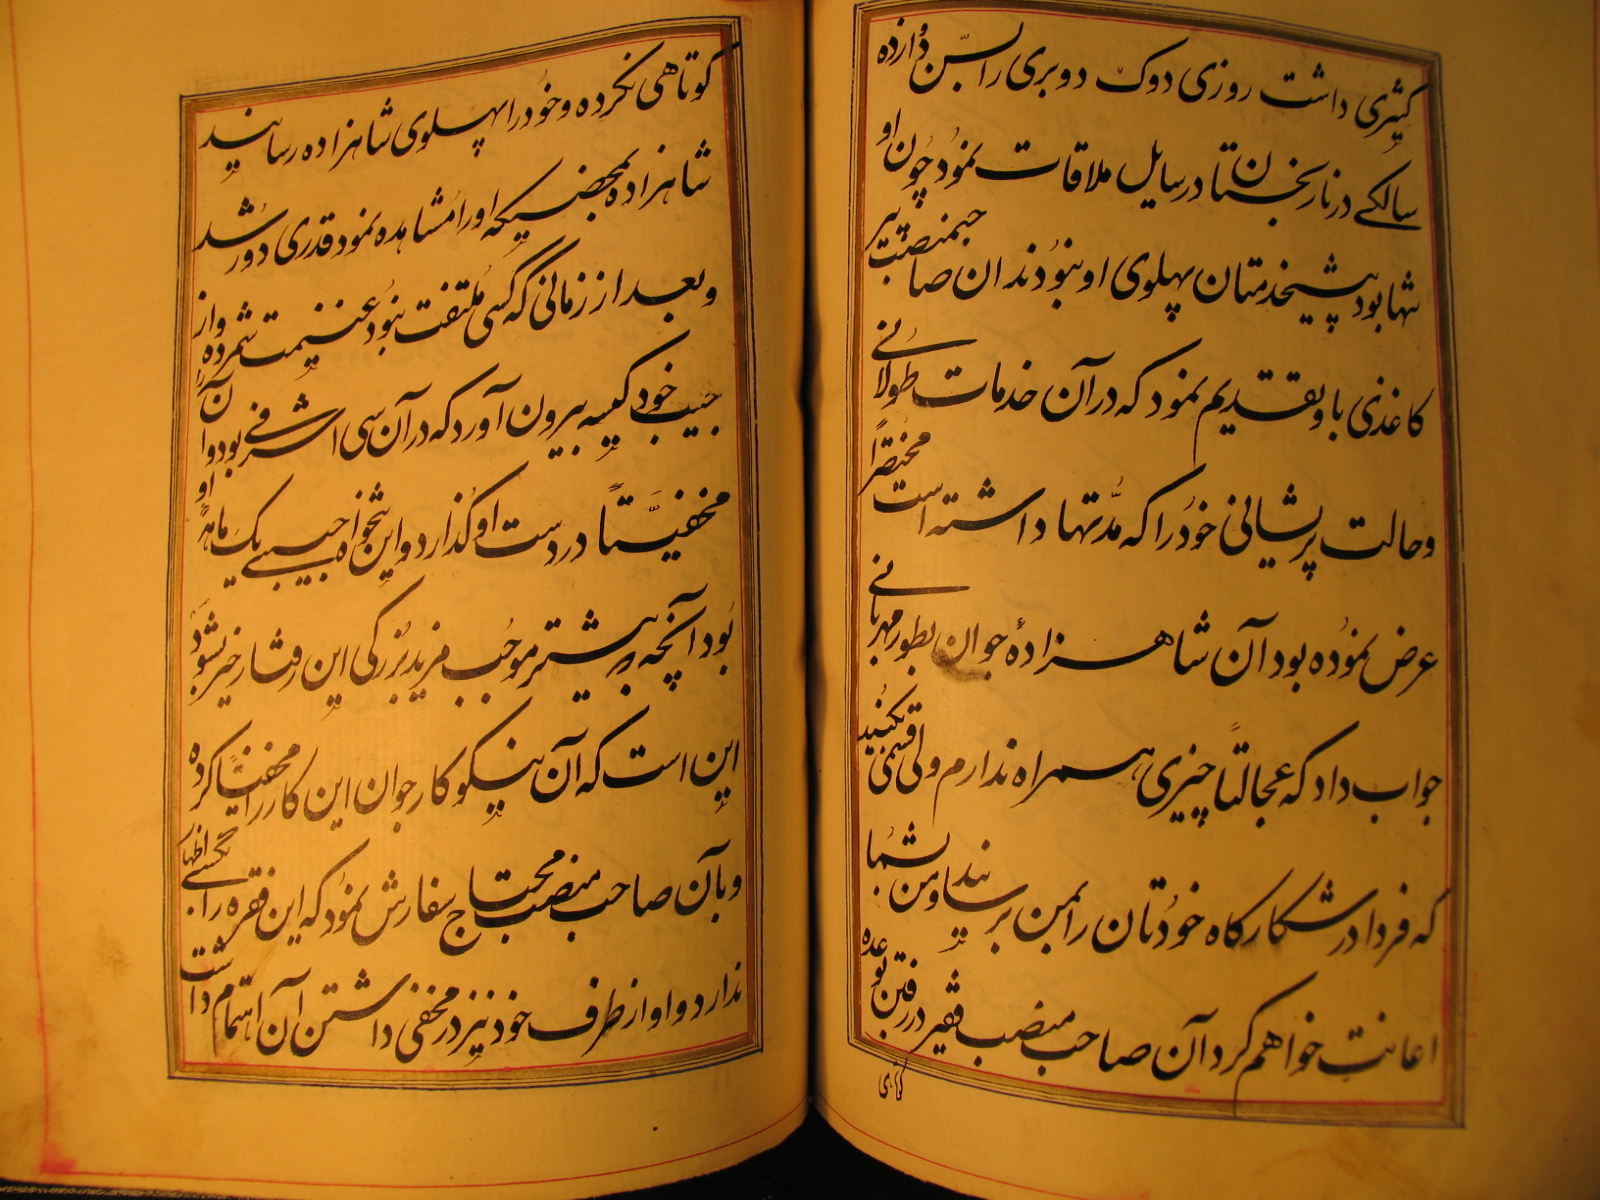 کثیری داشت روزی دوک دوبری را بسن دوازده
سالکی در نارنجستان در سایل ملاقات نمود چون او
تنها بود پیشخدمتان پهلوی او نبودند ان صاحبمنصب پیر
کاغذی باو تقدیم نمود که در آن خدمات طولانی
وحالت پریشانی خود را که مدّتها داشته است مختصراً
عرض نموده بود آن شاهزادهٔ جوان بطور مهربانی
جواب داد که عجالتاً چیزی همراه ندارم ولی قسمی بکنید
که فردا در شکارکاه خودتان را بمن برسانید و من بشما
اعانت خواهم کرد آن صاحب منصب فقیر در رفتن بوعده
کوتاهی
کوتاهی نکرده و خود را پهلوی شاهزاده رسانید
شاهزاده بمحض اینکه او را مشاهده نمود قدری دور شد
و بعد از زمانی که کسی ملتفت نبود غنیمت شمرده و از
جیب خود کیسه بیرون آورد که در آن سی اشرفی بود و آن را
مخفیّتاً در دست او گذارد و این تنخواه جیبی یک ماههٔ او
بود آنچه بیشتر موجب مزید بزرکی این رفتار خیر بشود
این است که آن نیکو کار جوان این کار را مخفیّاً کرده
و بآن صاحب منصب محتاج سفارش نمود که این فقره را بکسی اظهار
ندارد و او از طرف خود نیز در مخفی داشتن آن اهتمام داشت